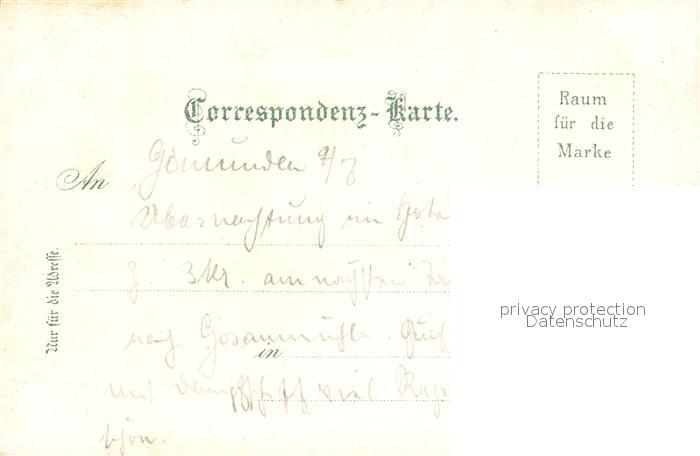 Correspondenz-Karte.
Raum
für die
Marke
An
Gmunden
Übernachtung im Hote
3 Kr. am nächsten
nach Gosaumühle.
in
mit Dampfschiff viel Rege
schön.
Nur für die Adresse.
privacy protection
Datenschutz